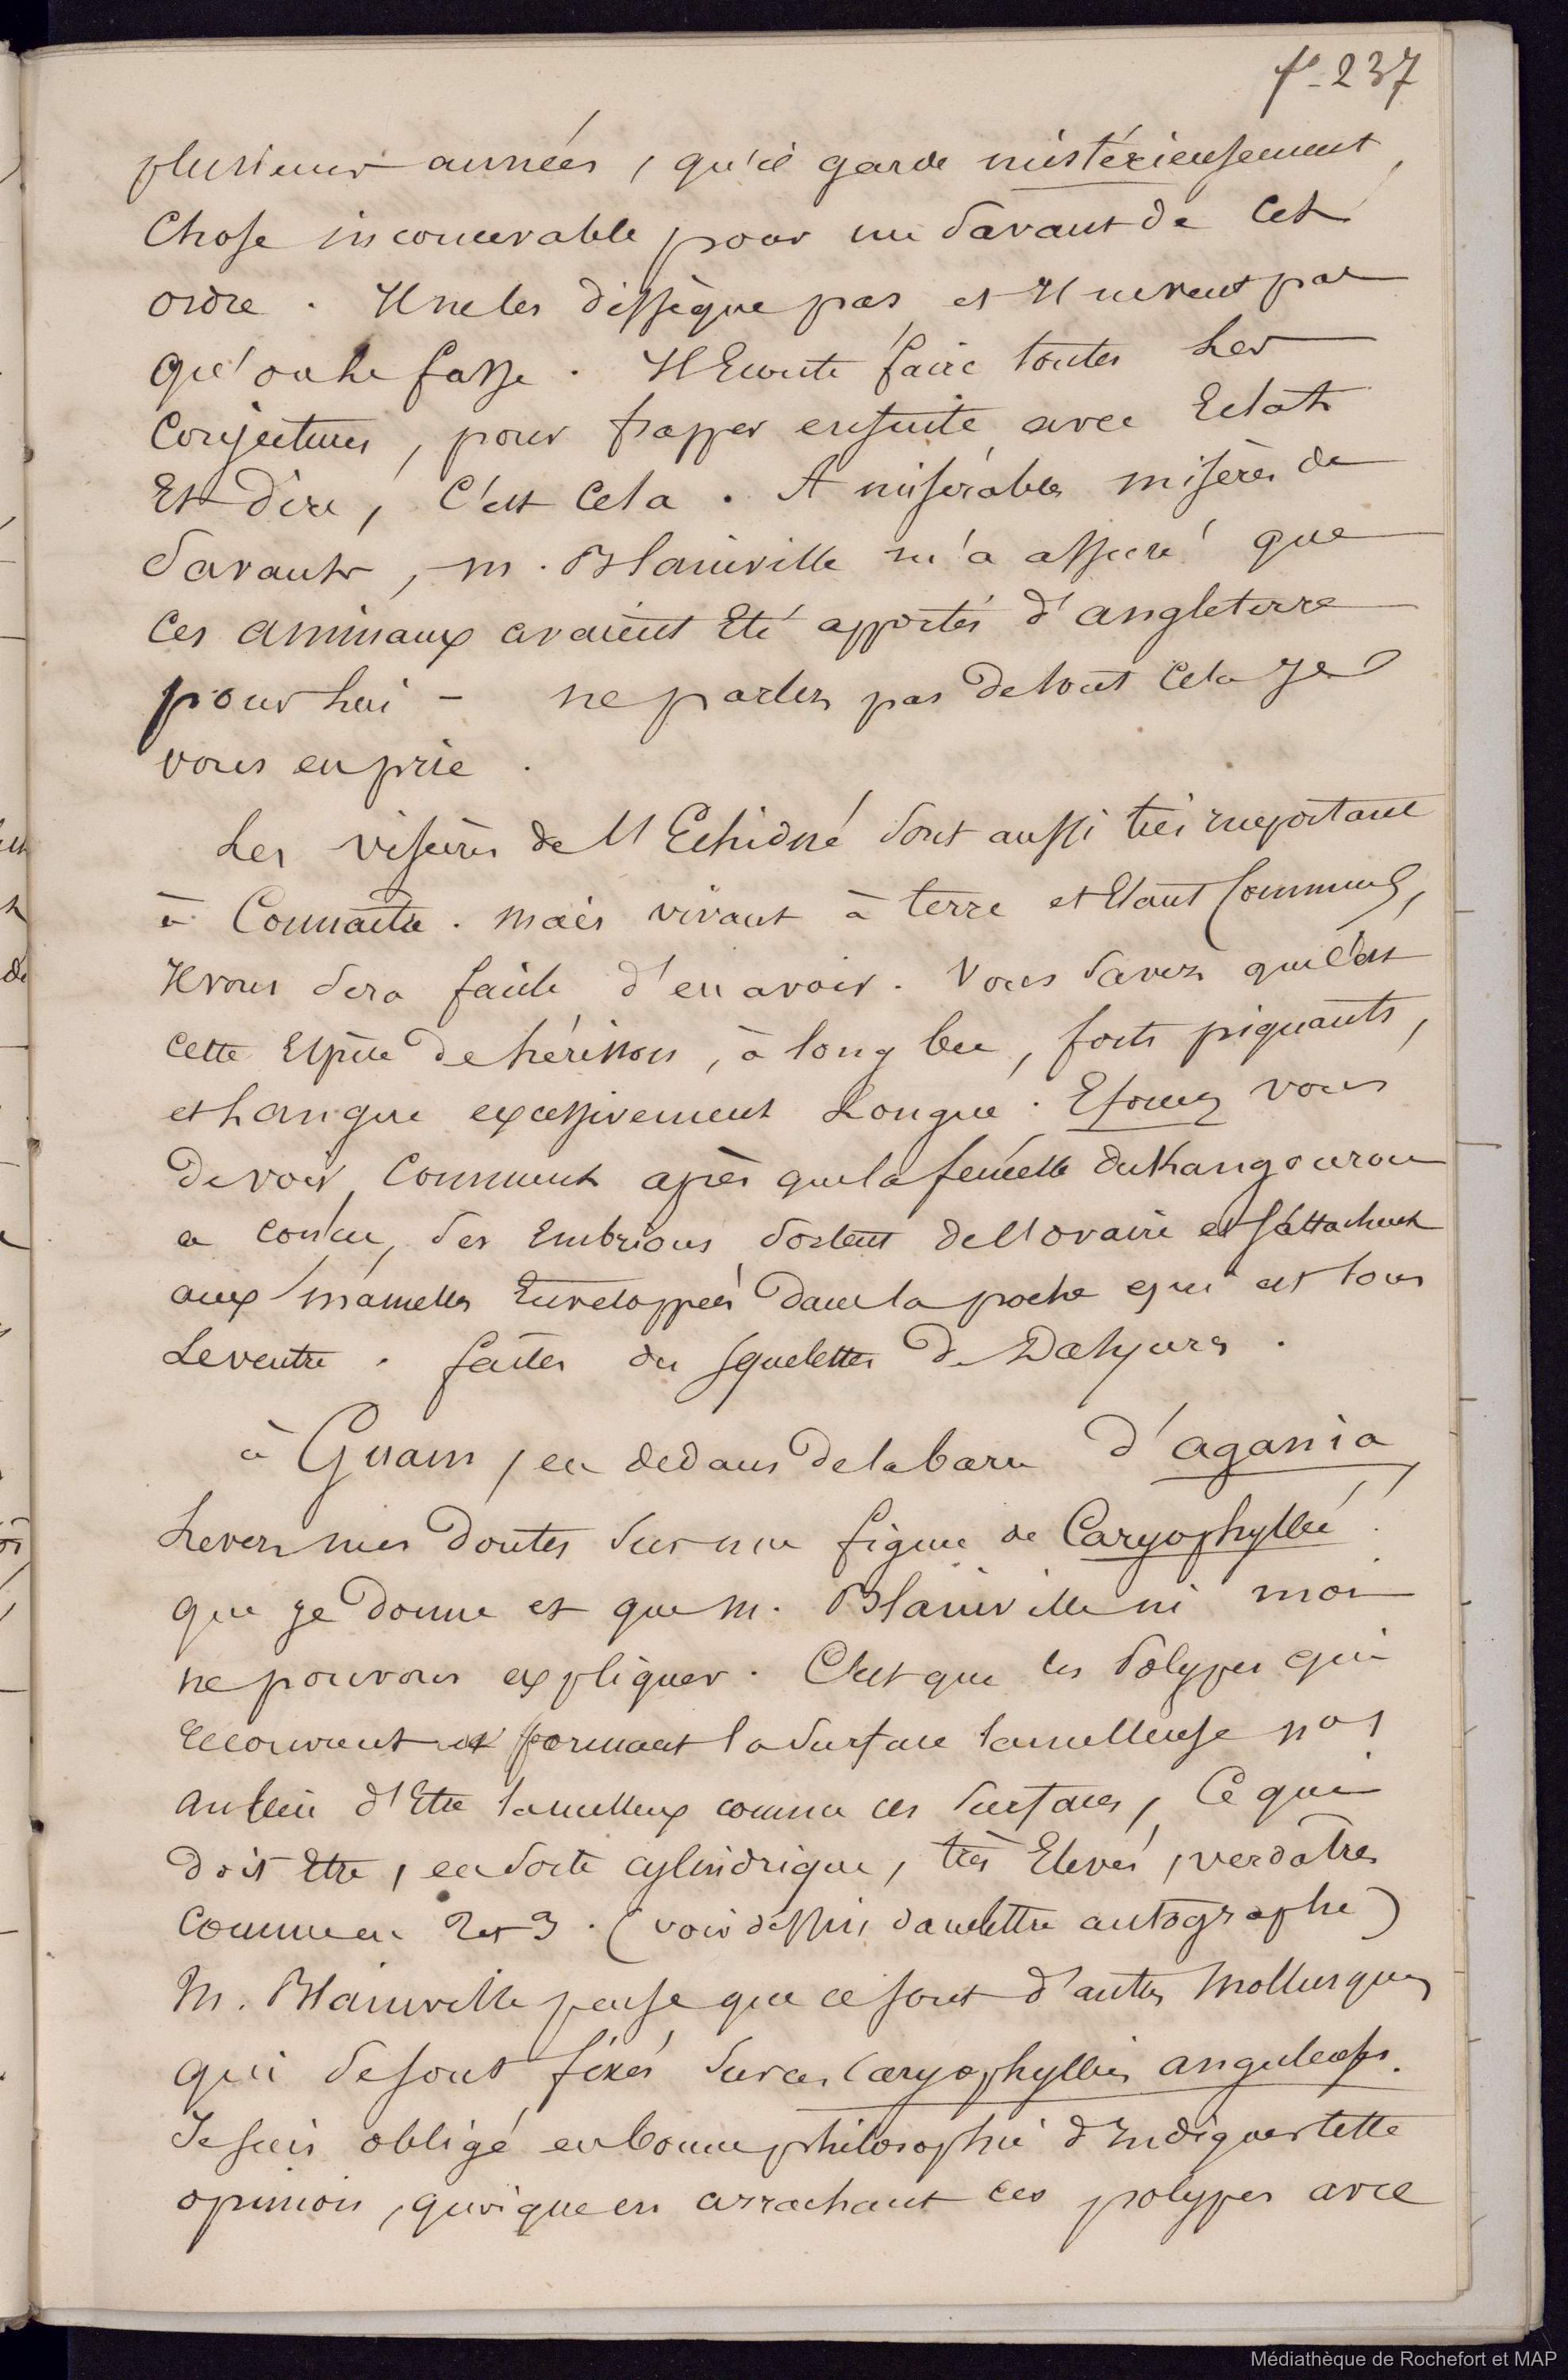 fo-237
plusieurs années, qu'il garde mistérieusement,
Chose inconcevable pour un Savant de cet
ordre. Il ne les dissèque pas et Il ne veut pas
qu'on le fasse. Il Ecoute faire toutes les
Conjectures, pour frapper ensuite avec Eclat
Et dire, C'est Cela. A misérables misères de
Savants, M. Blainville m'a assuré que
Ces animaux avaient Eté apportés d'angleterre
pour lui - ne parlez pas de tout Cela Je
vous en prie.
Les viscères de l'Echidné sont aussi très important
à Connaitre. Mais vivant à terre et Etant Commun,
Il vous sera facile d'en avoir. Vous savez que c'est
cette Espèce de hérisson, à long bec, forts piquants,
et langue excessivement Longue. Efforcez vous
de voir, Comment après que la femelle du Kangourou
a conçu, ses Embrions sortent de l'ovaire et s'attachent
aux mamelles Enveloppées dans la poche qui est sous
Le ventre. faites des squelettes de Dasyures.
à Guam, en dedans de la barre d'agania,
Levez mes doutes sur une figure de Caryophyllée
que je donne et que M. Blainville ni moi
ne pouvons expliquer. C'est que les Polypes qui
recouvrent et formant la surface lamelleuse no 1
au lieu d'Etre lamelleux comme ces surfaces, Ce qui
doit Etre, en sorte cylindrique, très Elevés, verdatres
comme en 2 et 3. (voir dessin dans lettre autographe)
M. Blainville pense que ce sont d'autres Mollusques
qui se sont fixés sur ces Caryophyllies anguleuses.
Je suis obligé en bonne philosophie d'Indiquer cette
opinion, quoique en arrachant ces polypes avec
Médiathèque de Rochefort et MAP